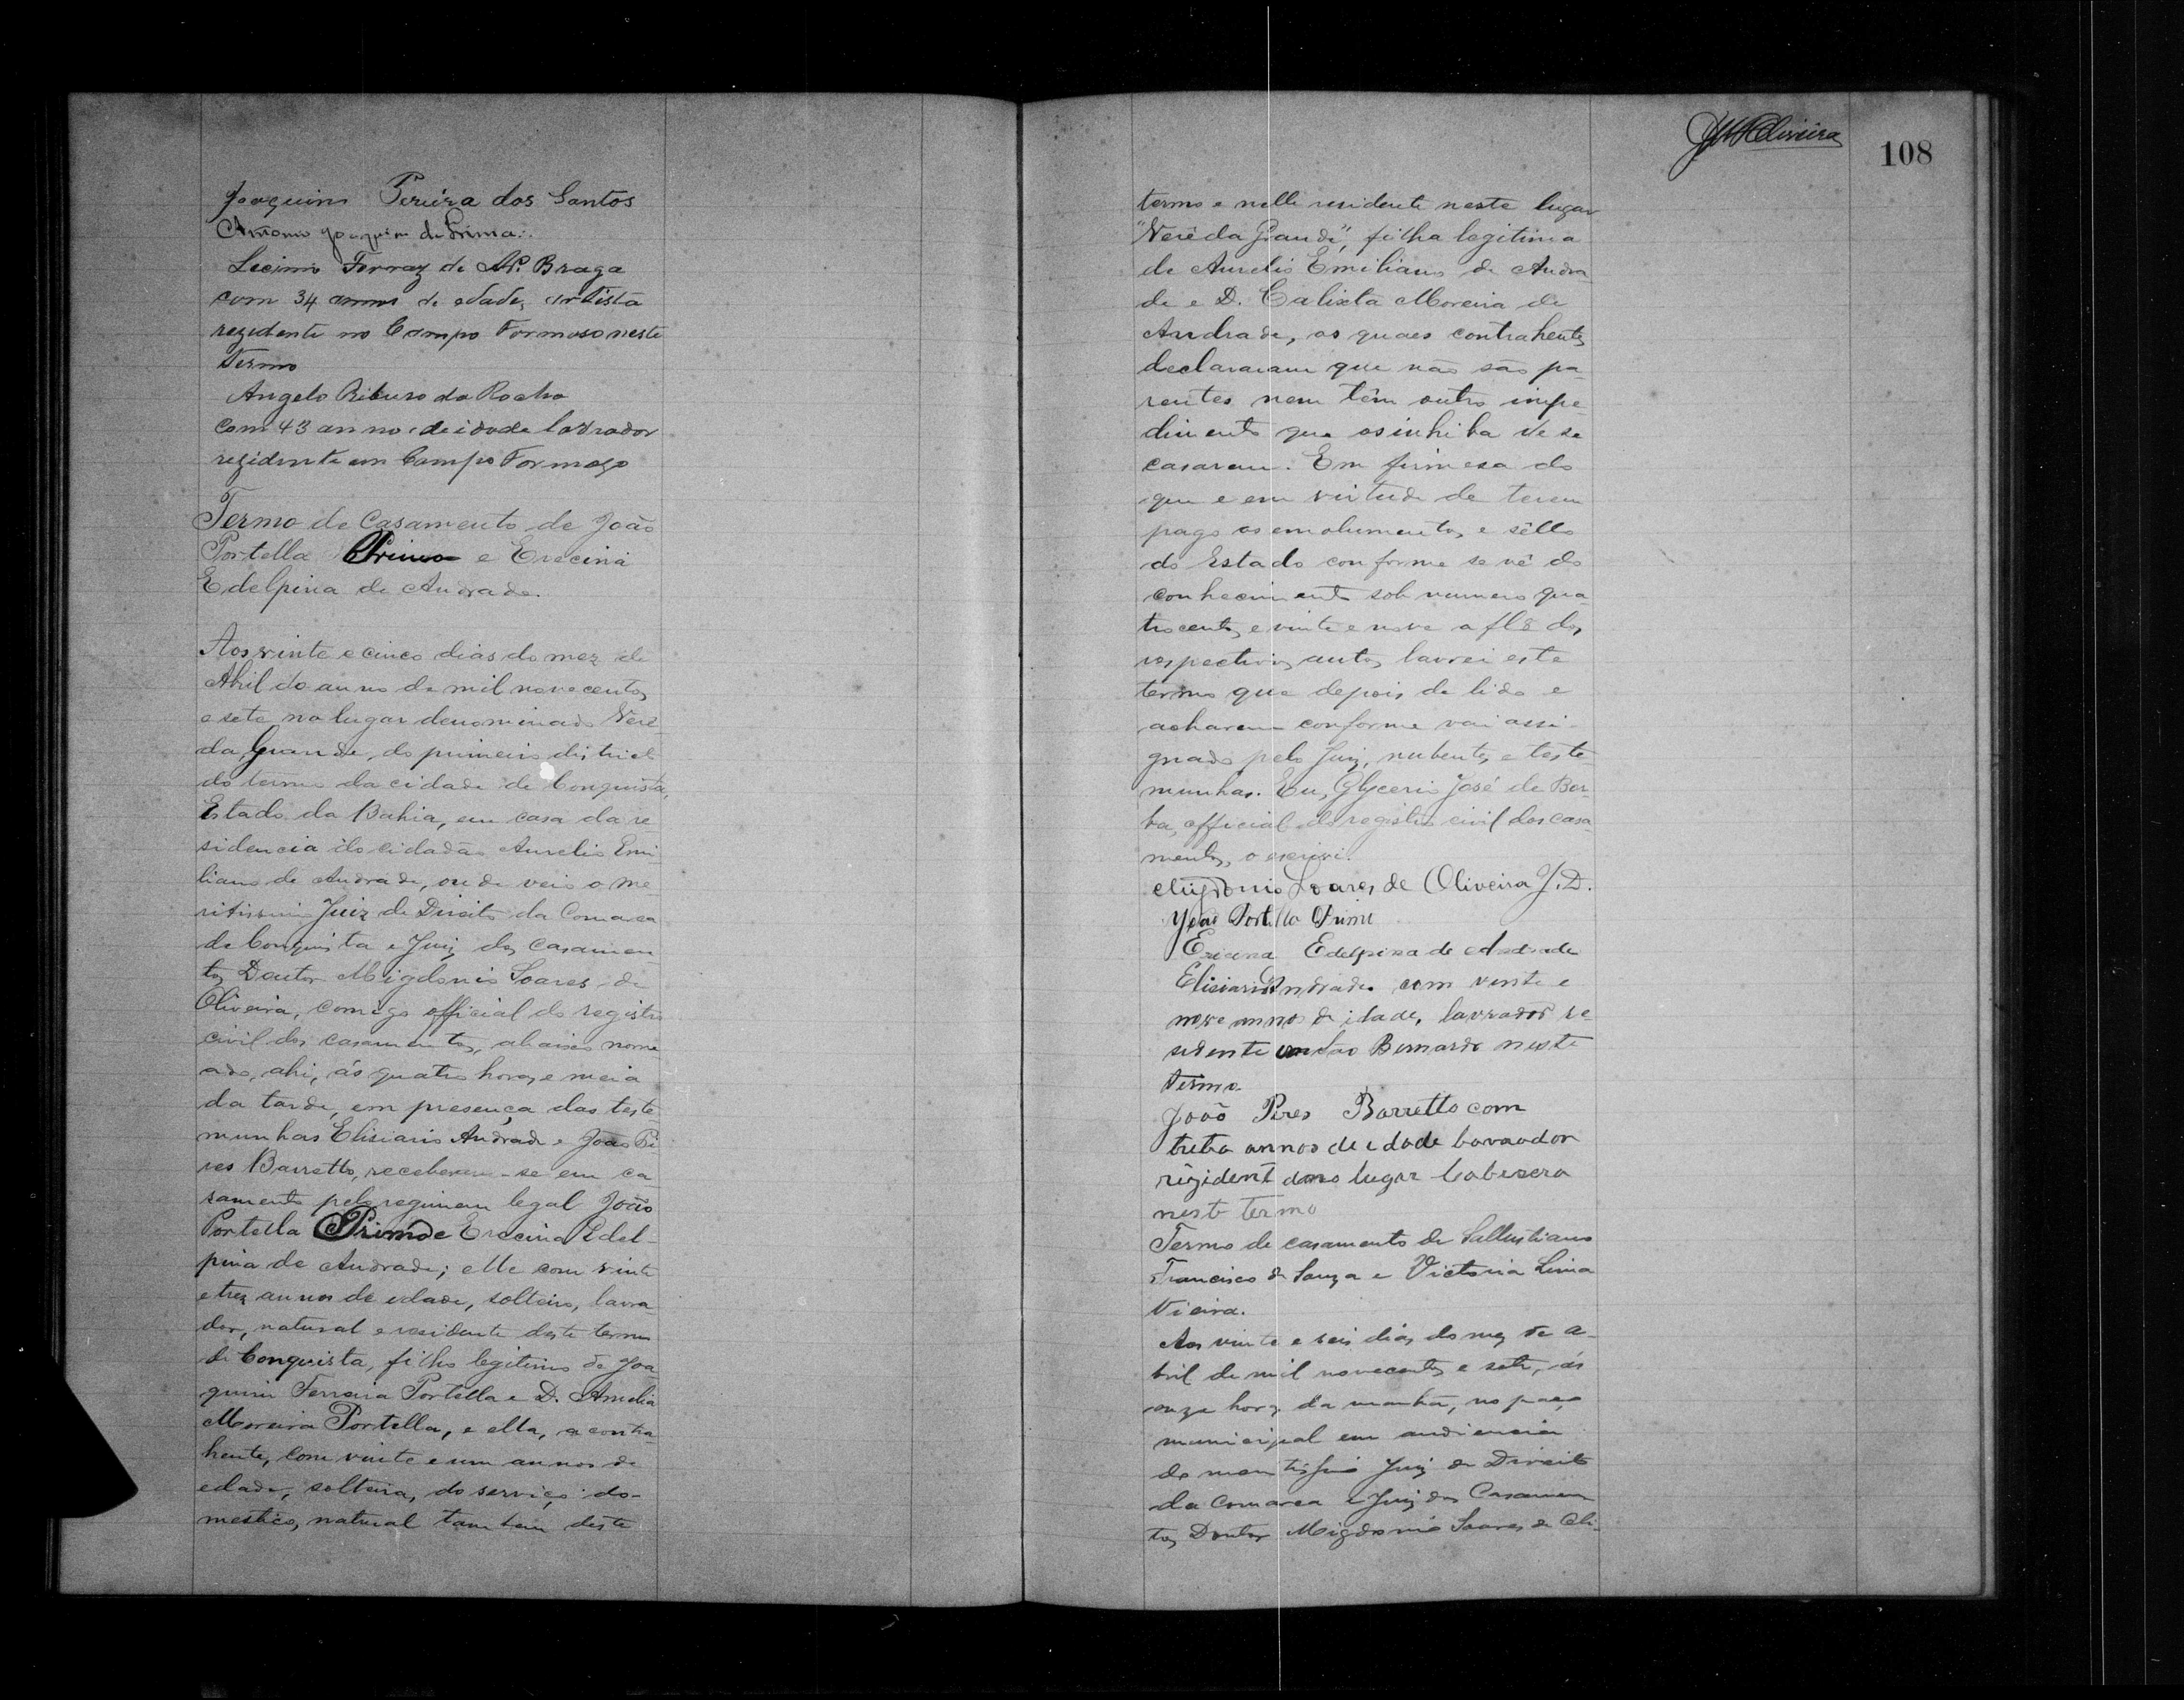 Joaquim Pereira dos Santos
Antonio Joaquim de Lima
Lecinio Ferraz de Ar.º Braga
com 34 annos de edade, artista
rezidente no Campo Formoso neste
termo
Angelo Ribeiro da Rocha
com 43 annos de idade lavrador
rezidente em Campo Formozo
Termo de Casamento de João
Portella Primo e Erecina
Edelpina de Andrade.
Aos vinte e cinco dias do mez de
Abril do anno de mil novecentos
e sete, no lugar denominado Vere-
da Grande, do primeiro districto
do termo da cidade de Conquista,
Estado da Bahia, em casa da re-
sidencia do cidadão Aurelio Emi-
liano de Andrade, onde veio o me-
ritissimo Juiz de Direito da Comarca
de Conquista e Juiz dos Casamen-
tos Doutor Migdonio Soares de
Oliveira, comigo official do registro
civil dos casamentos, abaixo nome-
ado, ahi, ás quatro horas e meia
da tarde, em presença das teste-
munhas Elisiario Andrade e João Pi-
res Barretto, receberam-se em ca-
samento pelo regimen legal João
Portella Primo e Erecina Edel-
pina de Andrade; elle com vinte
e tres annos de edade, solteiro, lavra-
dor, natural e residente deste termo
de Conquista, filho legitimo de Joa-
quim Ferreira Portella e D. Amelia
Moreira Portella, e ella, a contra-
hente, com vinte e um annos de
edade, solteira, do serviço do-
mestico, natural tambem deste
JMSOliveira
108
termo e nelle residente neste lugar
"Verêda Grande", filha legitima
de Aurelio Emiliano de Andra-
de e D. Calixta Moreira de
Andrade, os quaes contrahentes
declararam que não são pa-
rentes nem têm outro impe-
dimento que os inhiba de se
casarem. Em firmesa do
que e em virtude de terem
pago os emolumentos e sêllo
do Estado conforme se vê do
conhecimento sob numero qua-
trocentos e vinte e nove a fl 8 dos
respectivos autos, lavrei este
termo que depois de lido e
acharem conforme vai assi-
gnado pelo Juiz, nubentes e teste-
munhas. Eu, Glycerio José de Bar-
ba, official do registro civil dos casa-
mentos, o escrivi.
Migdonio Soares de Oliveira J. D.
João Portella Primo
Erecina Edelpina de Andrade
Elisiario Andrade com vinte e
nove annos de idade, lavrador re-
sidente em São Bernardo neste
termo.
João Pires Barretto com
treta annos de edade lavrador
rezident no lugar Cabesera
nest termo
Termo de casamento de Sallustiano
Francisco de Souza e Victoria Lima
Vieira.
Aos vinte e seis dias do mez de A-
bril de mil novecentos e sete, ás
onze horas da manhã, no paço
municipal em audiencia
do meritissimo Juiz de Direito
da Comarca e Juiz dos Casamen-
tos Doutor Migdonio Soares de Oli-